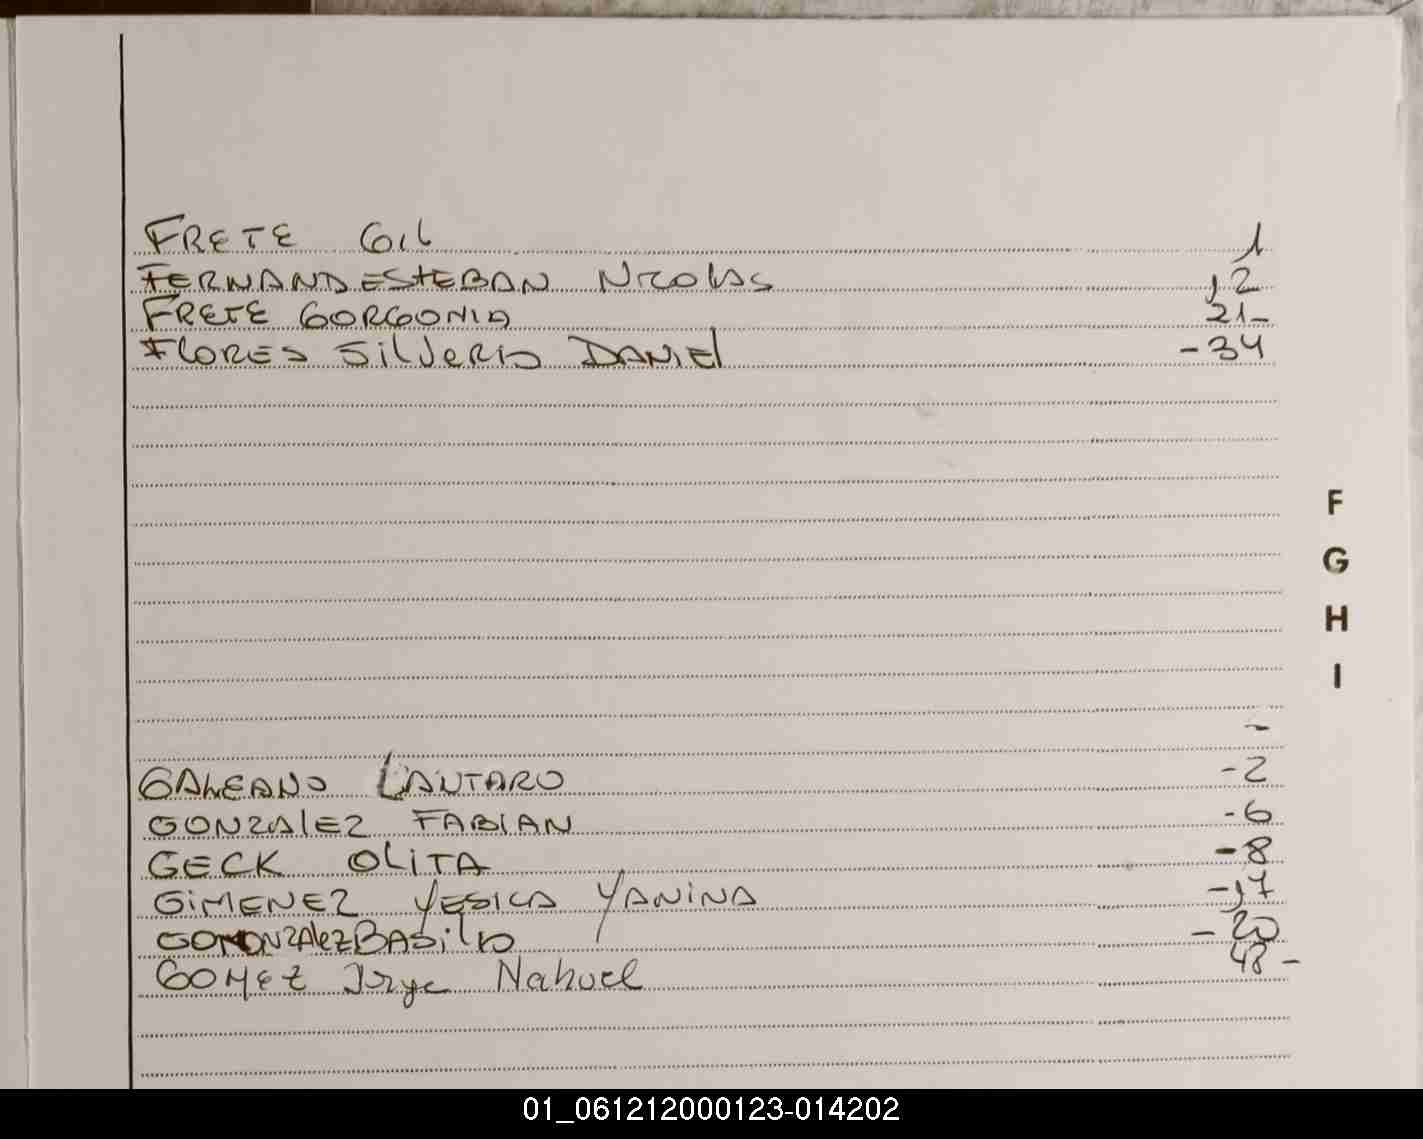 FRETE GIL 1
FERNAND ESTEBAN NICOLAS 12
FRETE GORGONIA 21-
FLORES SILVERIO DANIEL -34
F
G
H
I
-
GALEANO LAUTARO -2
GONZALEZ FABIAN -6
GECK OLITA -8
GIMENEZ YESICA YANINA -17
GONZALEZ BASILIO -20
GOMEZ Jorge Nahuel 48-
01_061212000123-014202